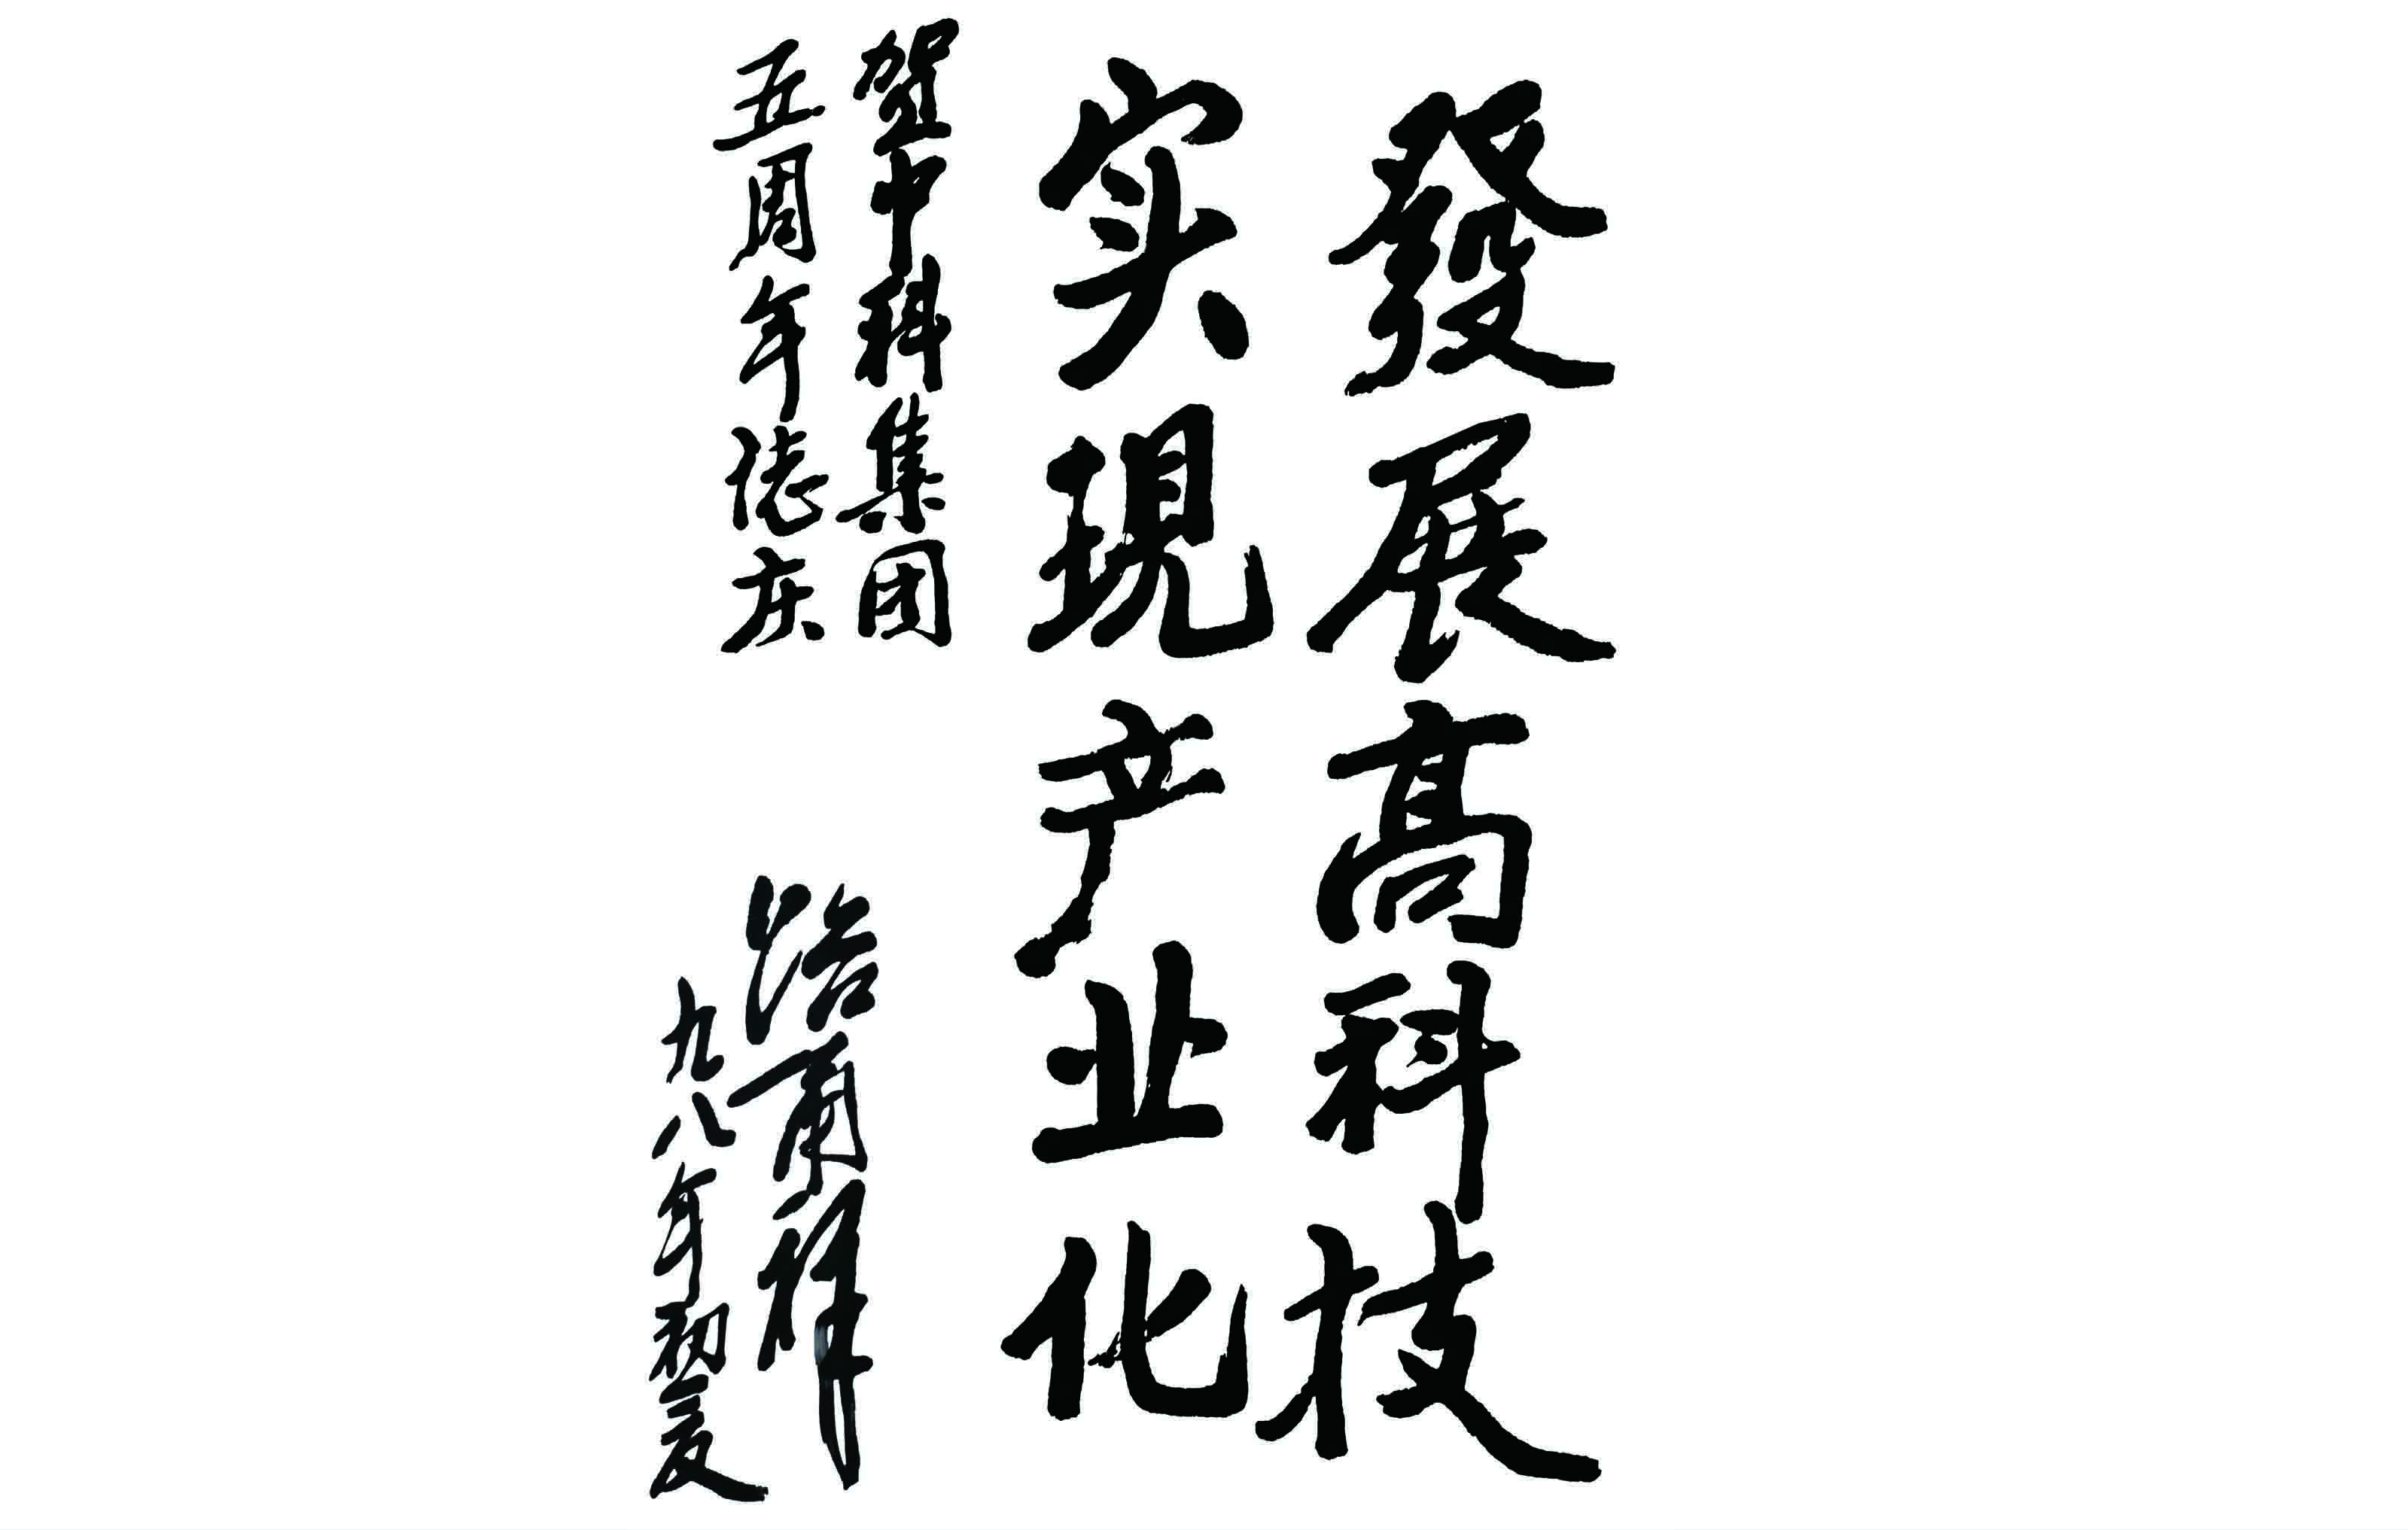 發展高科技
实現产业化
贺中科集团
五周年誌庆
路甬祥
九八年初夏